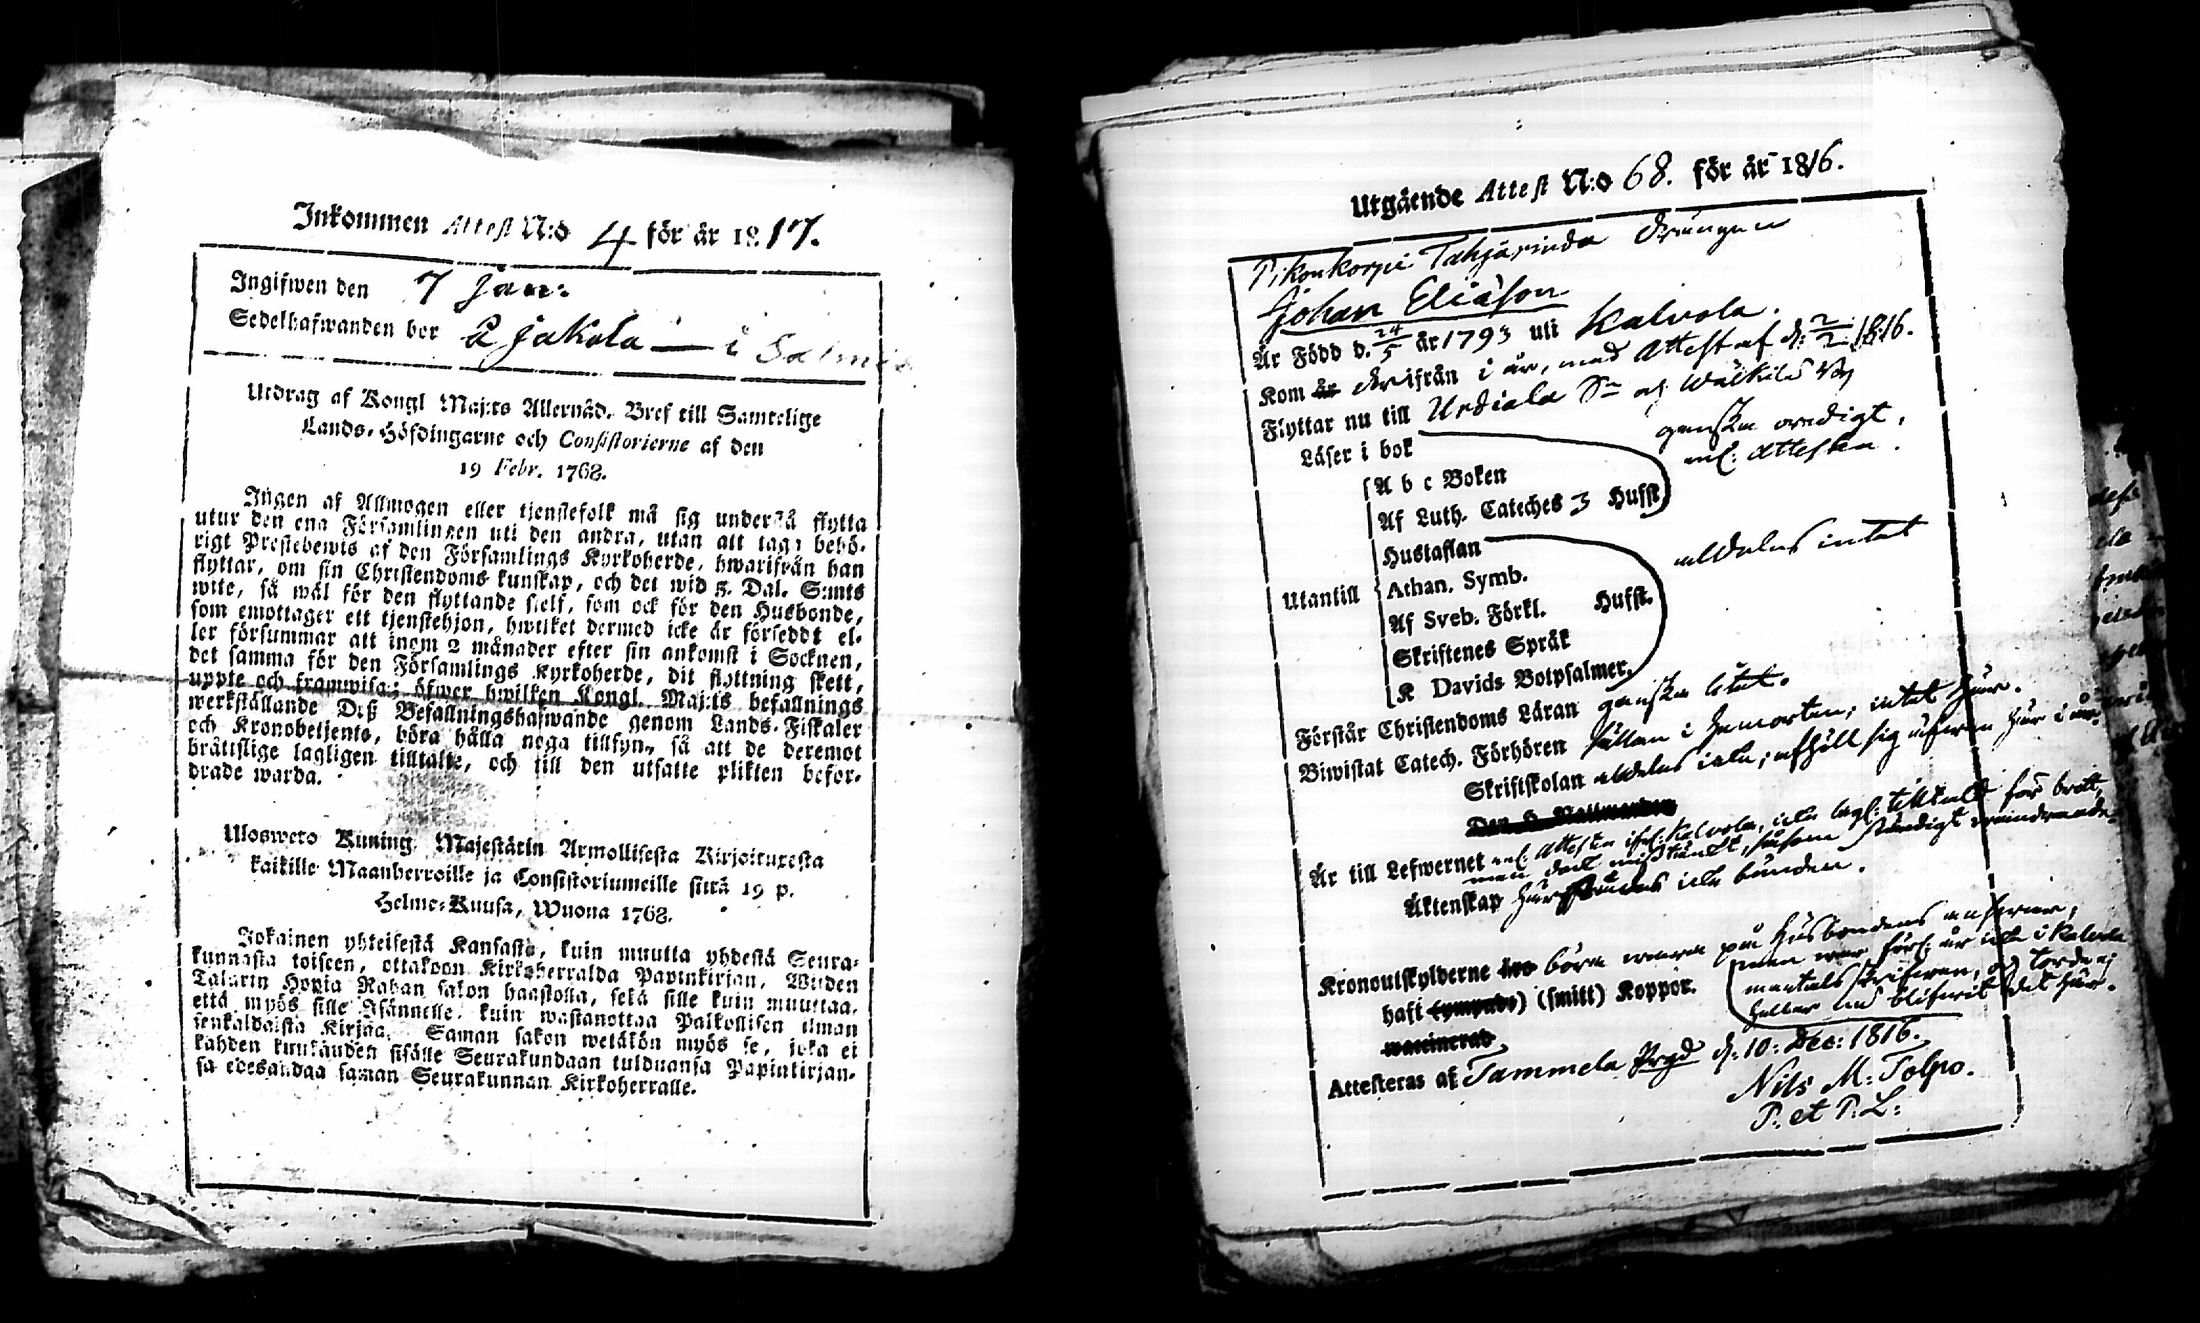 Inkommen Attest N:o 4 för år 1817.
Ingifwen den 7 Jan:
Sedelhafwanden bor å Jakola — i Salmis
Utdrag af Kongl Maj:ts Allernåd. Bref till Samtelige
Lands-Höfdingarne och Consistorierne af den
19 Febr. 1768.
Ingen af Allmogen eller tjenstefolk må sig understå flytta
utur den ena Församlingen uti den andra, utan att taga behö-
rigt Prestebewis af den Församlings Kyrkoherde, hwarifrån han
flyttar, om sin Christendoms kunskap, och det wid 5. Dal. S:mts
wite, så wäl för den flyttande sielf, som ock för den Husbonde,
som emottager ett tjenstehjon, hwilket dermed icke är förseddt el-
ler försummar att inom 2 månader efter sin ankomst i Socknen,
det samma för den Församlings Kyrkoherde, dit flyttning skett,
uppte och framwisa; öfwer hwilken Kongl. Maj:ts befallnings
werkställande Deß Befallningshafwande genom Lands-Fiskaler
och Kronobetjente, böra hålla noga tillsyn, så att de deremot
brättslige lagligen tilltalte, och till den utsatte plikten befor-
drade warda.
Uloswero Kuning. Majestätin Armollisesta Kirjoituxesta
kaikille Maanherroille ja Consistoriumeille siitä 19 p.
Helme-Kuusa, Wuona 1768.
Jokainen yhteisestä Kansasta, kuin muutta yhdestä Seura-
kunnasta toiseen, ottakoon Kirkoherralda Papinkirjan, Wiiden
Talarin Hopia Rahan sakon haastolla, sekä sille kuin muuttaa,
että myös sille Isännelle, kuin wastanottaa Palkollisen ilman
senkaldaista Kirjaa. Saman sakon wetäkön myös se, joka ei
kahden kuukauden sisälle Seurakundaan tulduansa Papinkirjan-
sa edesandaa saman Seurakunnan Kirkoherralle.
Utgående Attest N:o 68. för år 1816.
Pikonkorpi Tahjärinda Drängen
Johan Eliäson
Är Född d. 24/5 år 1793 uti Kalvola.
Kom är derifrån i år, med Attest af d: 2/2 1816.
Flyttar nu till Urdiala Sn och Wälkilä By
Läser i bok ganska oredigt,
enl: Attesten.
A b c Boken
Af Luth. Cateches 3 Hufst.
Hustaflan aldeles intet
Athan. Symb.
Utantill
Af Sveb. Förkl. Hufst.
Skriftenes Språk
K Davids Botpsalmer.
Förstår Christendoms Läran ganska litet.
Biwistat Catech. Förhören sällan i hemorten, intet här.
Skriftskolan aldeles icke; afhöll sig äfwen här i år
Är till Lefwernet enl: Attesten ifrån Kalvola, icke lagl: tilltald för brott,
men dock misstänkt, såsom ständigt omvandrande.
Äktenskap här icke bunden.
Kronoutskylderne böra wara på Husbondens answar,
men war förl: år icke i Kalvola
mantals skrifwen, och torde ej
heller ha blifwit det här.
haft (smitt) Koppor.
waccinerad
Attesteras af Tammela Prgd d: 10: Dec: 1816.
Nils M: Tolpo.
P: et P: L: